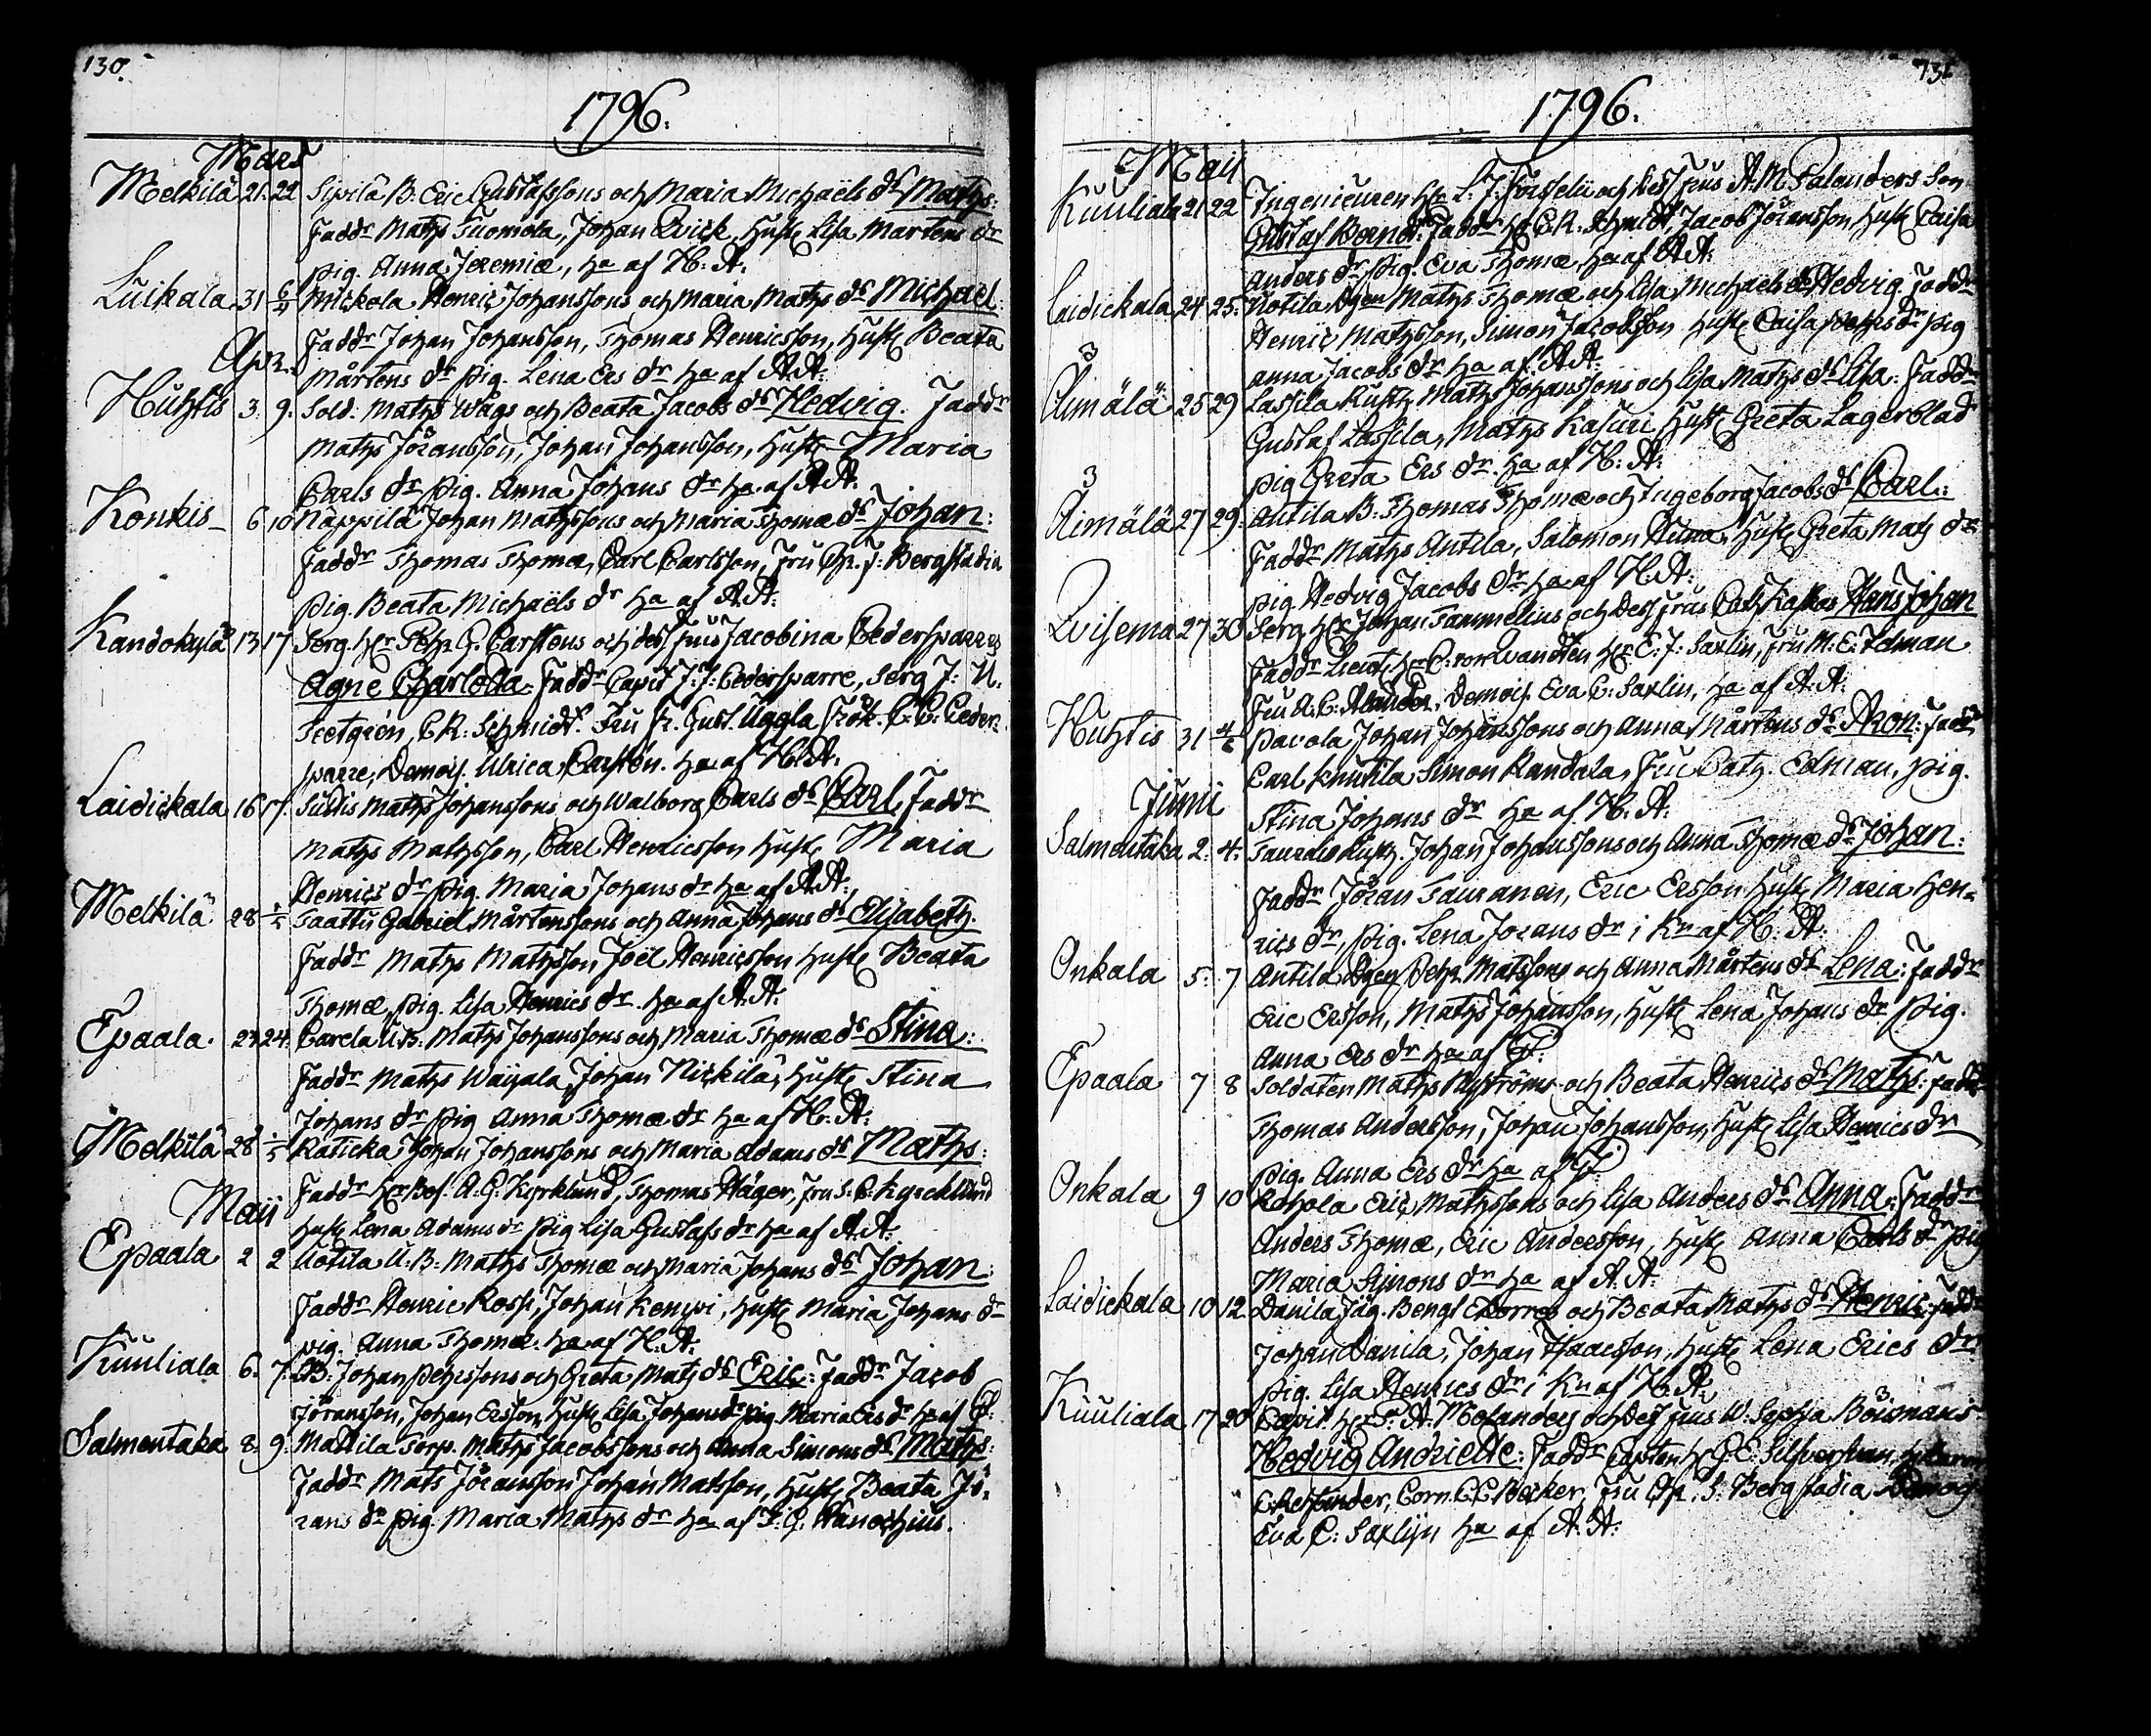 130.
1796.
Mars
Melkilä 21. 22 Sipilä B. Eric Gustafssons och Maria Michaëls ds Maths:
Faddr Maths Tuomola, Johan Qvick, Hust. Lisa Mårtens dr
pig. Anna Jeremiæ, ha af H: A:
Luikala 31 6/4 Mickola Henric Johanssons och Maria Maths ds Michael.
Faddr Johan Johansson, Thomas Henricsson, Hust. Beata
Apr.
Mårtens dr pig. Lena Ers dr ha af A: A:
Huhtis 3. 9. Sold. Maths Wågs och Beata Jacobs ds Hedvig. Faddr
Maths Jöransson, Johan Johansson, Hust. Maria
Carls dr pig. Anna Johans dr ha af A: A:
Konkis 6. 10 Näppilä Johan Mathssons och Maria Thomæ ds Johan:
Faddr Thomas Thomæ, Carl Carlsson, Fru Chr. J: Bergstadia
Pig. Beata Michaëls dr ha af A: A:
Kandokylä 13 17 Serg. Hr Petr G. Carstens och dess frus Jacobina Cedersparres
Agne Charlotta: Faddr Capit J: J: Cedersparre, Serg J: U.
Feetgrén, C R: Schmidt. Fru Fr. Gust. Uggla Frök. C: C: Ceder-
sparre, Demois. Ulrica Carstén. ha af H: A:
Laidickala 16 17. Suutis Maths Johanssons och Walborg Carls ds Carl, Faddr
Maths Mathsson, Carl Henricsson Hust. Maria
Henrics dr pig. Maria Johans dr ha af A: A:
Melkilä 28 1/5 Taattu Gabriel Mårtenssons och Anna Johans dr Elisabeth.
Faddr Maths Mathsson, Joël Henricsson Hust. Beata
Thomæ, pig. Lisa Henrics dr ha af A: A:
Epaala. 23 24. Carela U: B: Maths Johanssons och Maria Thomæ ds Stina:
Faddr Maths Wäyälä, Johan Nickilä, Hust. Stina
Johans dr pig Anna Thomæ dr ha af H: A:
Melkilä 28 1/5 Raticka Johan Johanssons och Maria Adams ds Maths:
Faddr Hr Bof. A: G: Kyrklund, Thomas Häger, Fru S: C: Kyrcklund
Maij
Hust. Lena Adams dr pig Lisa Gustafs dr ha af A: A:
Epaala 2 2 Uotila U: B: Maths Thomæ och Maria Johans ds Johan:
Faddr Henric Rossi, Johan Kenppi, Hust. Maria Johans dr
pig. Anna Thomæ. ha af H: A:
Kuuliala 6. 7. B: Johan Pehrssons och Greta Mats ds Eric: Faddr Jacob
Jöransson, Johan Ersson, Hust. Lisa Johans dr pig. Maria Ers dr ha af
Salmentaka 8. 9. Mattila Torp. Maths Jacobssons och Anna Simons ds Maths:
Faddr Mats Jöransson Johan Matsson, Hust. Beata Jö-
rans dr pig. Maria Maths dr ha af F: G. Hanochius.
131
1796.
Maij
Kuuliala 21 22 Ingenieuren Hr L: J: Forsselii och dess frus A: M Palanders Son
Gustaf Bernd: Faddr Hr C. R. Schmidt, Jacob Jöransson, Hust. Caisa
Anders dr pig. Eva Thomæ ha af A: A:
Laidickala 24 25. Uotila Maths Thomæ och Lisa Michaels ds Hedvig: Faddr
Henric Mathsson, Simon Jacobsson Hust. Caisa dr pig
Anna Jacobs dr ha af A: A:
Äimälä 25 29 Lassila Maths Johanssons och Lisa Maths ds Lisa: Faddr
Gustaf Lassila, Maths Kasuri Hust. Greta Lagerblad
pig Greta Ers dr. ha af H: A:
Äimälä 27 29. Antila B: Thomas Thomæ och Ingeborg Jacobs ds Carl:
Faddr Maths Antila, Salomon Hunna, Hust. Greta Mats dr
pig Hedvig Jacobs dr ha af H: A:
Luisema 27 30 Serg. Hr Johan Tammelius och dess frus Cath Kaskas Hans Johan
Faddr Lieut. Hr C: von Qvandten Hr E: J: Saxlin, Fru M: E: Edman
Fru A: C: Alander, Demois. Eva C: Saxlin, ha af A: A:
Huhtis 31 4/6 Pavola Johan Johanssons och Anna Mårtens ds Aron: Faddr
Carl Knutila Simon Randala, Fru Cath. Edman, pig.
Junii
Stina Johans dr ha af H: A:
Salmentaka 2. 4. Johan Johanssons och Anna Thomæ ds Johan:
Faddr Jöran Tauranen, Eric Ersson Hust. Maria Hen-
rics dr, pig. Lena Jörans dr i Kn af H: A:
Onkala 5. 7 Antila Petr Matssons och Anna Mårtens ds Lena: Faddr
Eric Ersson, Maths Johansson, Hust. Lena Johans dr pig.
Anna Ers dr ha af
Epaala 7 8 Soldaten Maths Nyströms och Beata Henrics ds Maths: Faddr
Thomas Andersson, Johan Johansson, Hust. Lisa Henrics dr
pig. Anna Ers dr ha af
Onkala 9 10 Rohola Eric Mathssons och Lisa Anders ds Anna: Faddr
Anders Thomæ, Eric Andersson, Hust. Anna Carls dr pig
Maria Simons dr ha af A: A:
Laidickala 10 12 Danila Jäg. Bengt och Beata Maths ds Henric: Faddr
Johan Danila, Johan Isacsson, Hust. Lena Erics dr
pig. Lisa Henrics dr i Kn af H: A:
Kuuliala 17 20 Capit. Hr F: A: Melanders och Dess frus W: Sophia Böismans
Hedvig Andriette: Faddr Capten Hr G: E: Silfversvan,
Corn. C. C. Becker, Fru Chr. S: Bergstadia Demois
Eva C: Saxlijn ha af A: A: